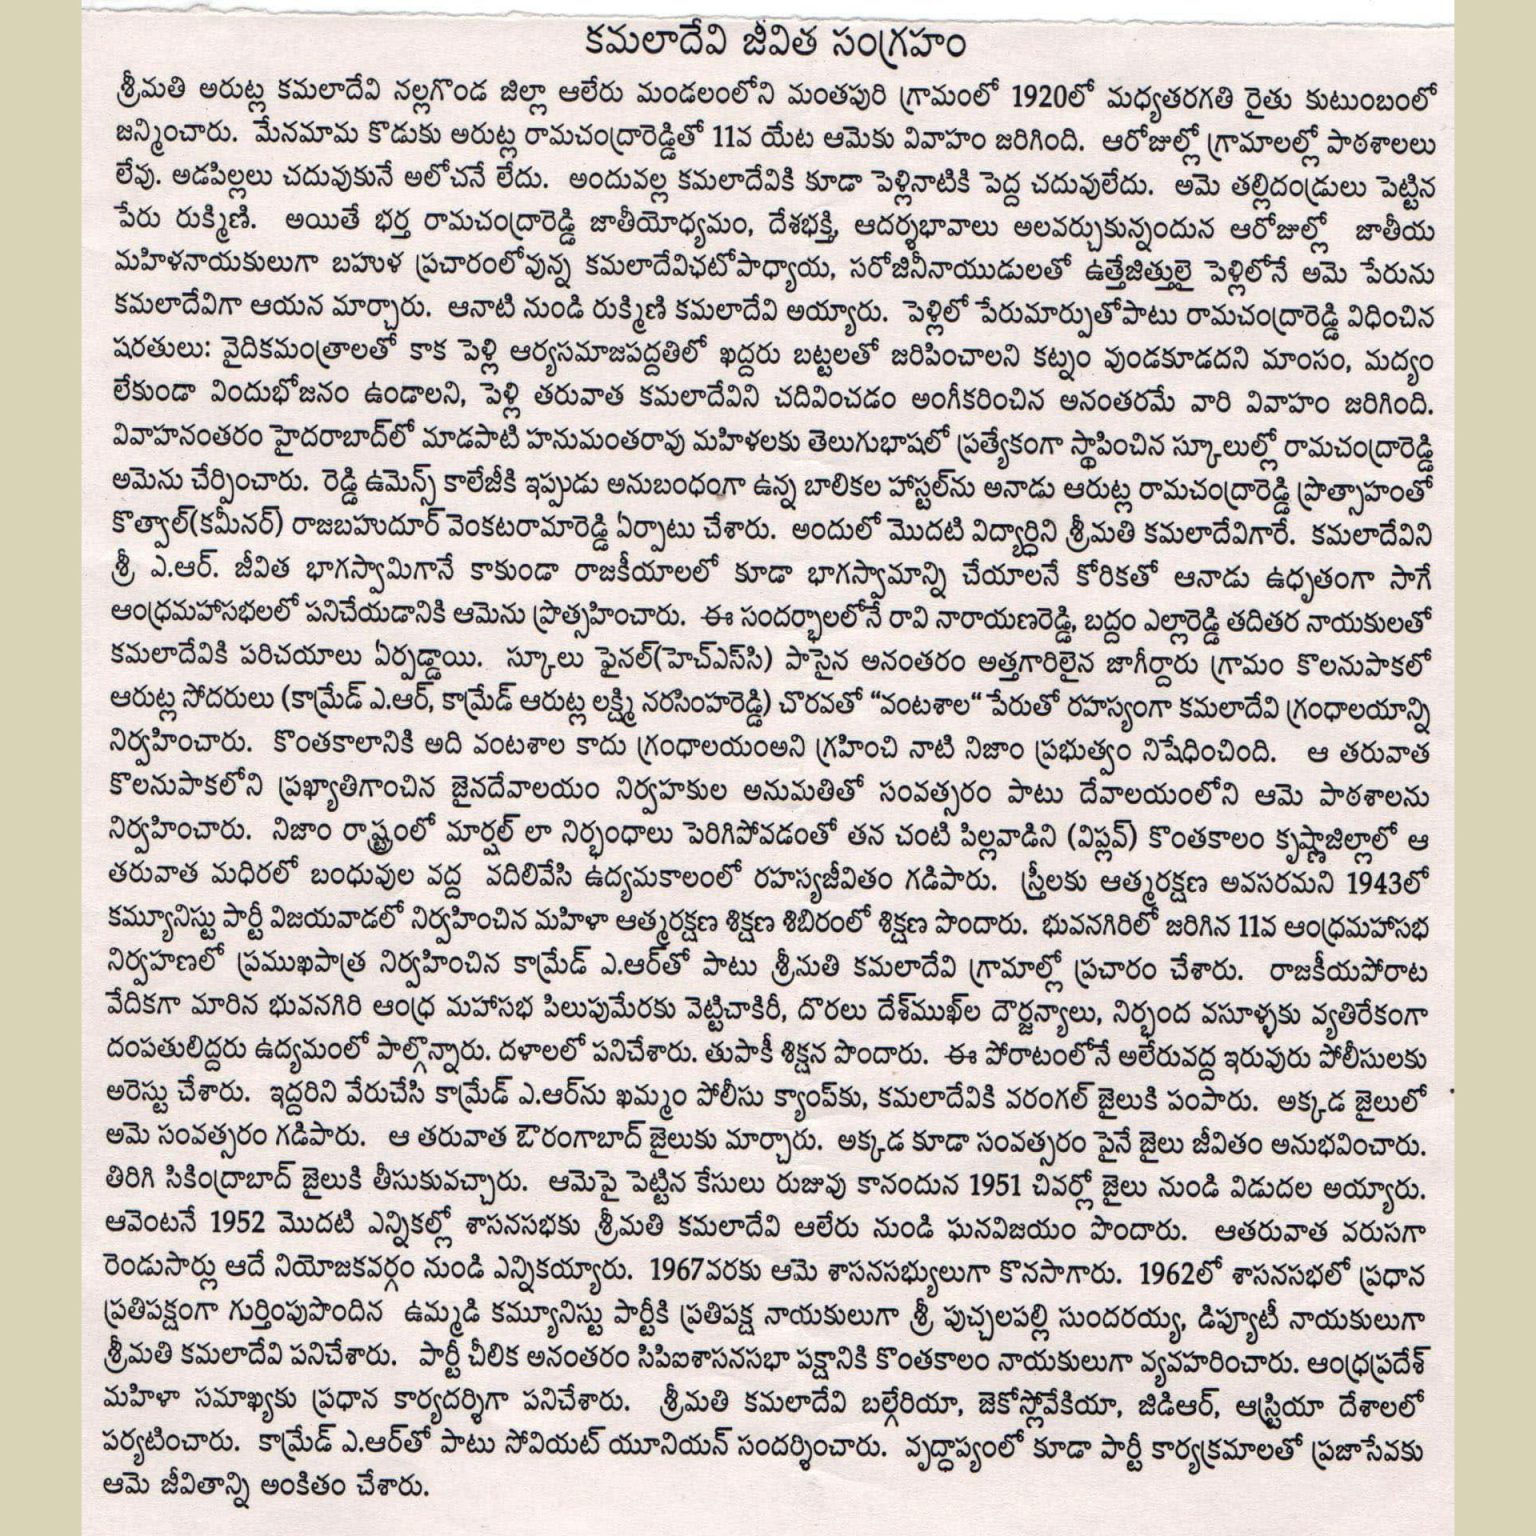 కమలాదేవి జీవిత సంగ్రహం
శ్రీమతి అరుట్ల కమలాదేవి నల్లగొండ జిల్లా ఆలేరు మండలంలోని మంతపురి గ్రామంలో 1920లో మధ్యతరగతి రైతు కుటుంబంలో
జన్మించారు. మేనమామ కొడుకు అరుట్ల రామచంద్రారెడ్డితో 11వ యేట ఆమెకు వివాహం జరిగింది. ఆరోజుల్లో గ్రామాలల్లో పాఠశాలలు
లేవు. అడపిల్లలు చదువుకునే అలోచనే లేదు. అందువల్ల కమలాదేవికి కూడా పెళ్లినాటికి పెద్ద చదువులేదు. అమె తల్లిదండ్రులు పెట్టిన
పేరు రుక్మిణి. అయితే భర్త రామచంద్రారెడ్డి జాతీయోధ్యమం, దేశభక్తి, ఆదర్శభావాలు అలవర్చుకున్నందున ఆరోజుల్లో జాతీయ
మహిళనాయకులుగా బహుళ ప్రచారంలోవున్న కమలాదేవిఛటోపాధ్యాయ, సరోజినీనాయుడులతో ఉత్తేజిత్తులై పెళ్లిలోనే అమె పేరును
కమలాదేవిగా ఆయన మార్చారు. ఆనాటి నుండి రుక్మిణి కమలాదేవి అయ్యారు. పెళ్లిలో పేరుమార్పుతోపాటు రామచంద్రారెడ్డి విధించిన
షరతులు: వైదికమంత్రాలతో కాక పెళ్లి ఆర్యసమాజపద్దతిలో ఖద్దరు బట్టలతో జరిపించాలని కట్నం వుండకూడదని మాంసం, మద్యం
లేకుండా విందుభోజనం ఉండాలని, పెళ్లి తరువాత కమలాదేవిని చదివించడం అంగీకరించిన అనంతరమే వారి వివాహం జరిగింది.
వివాహనంతరం హైదరాబాద్‌లో మాడపాటి హనుమంతరావు మహిళలకు తెలుగుభాషలో ప్రత్యేకంగా స్థాపించిన స్కూలుల్లో రామచంద్రారెడ్డి
అమెను చేర్పించారు. రెడ్డి ఉమెన్స్ కాలేజీకి ఇప్పుడు అనుబంధంగా ఉన్న బాలికల హాస్టల్‌ను అనాడు ఆరుట్ల రామచంద్రారెడ్డి ప్రొత్సాహంతో
కొత్వాల్(కమీనర్) రాజబహుదూర్ వెంకటరామారెడ్డి ఏర్పాటు చేశారు. అందులో మొదటి విద్యార్ధిని శ్రీమతి కమలాదేవిగారే. కమలాదేవిని
శ్రీ ఎ.ఆర్. జీవిత భాగస్వామిగానే కాకుండా రాజకీయాలలో కూడా భాగస్వామాన్ని చేయాలనే కోరికతో ఆనాడు ఉధృతంగా సాగే
ఆంధ్రమహాసభలలో పనిచేయడానికి ఆమెను ప్రొత్సహించారు. ఈ సందర్భాలలోనే రావి నారాయణరెడ్డి, బద్దం ఎల్లారెడ్డి తదితర నాయకులతో
కమలాదేవికి పరిచయాలు ఏర్పడ్డాయి. స్కూలు ఫైనల్(హెచ్ఎస్‌సి) పాసైన అనంతరం అత్తగారిలైన జాగీర్దారు గ్రామం కొలనుపాకలో
ఆరుట్ల సోదరులు (కామ్రేడ్ ఎ.ఆర్, కామ్రేడ్ ఆరుట్ల లక్ష్మి నరసింహరెడ్డి) చొరవతో “వంటశాల“ పేరుతో రహస్యంగా కమలాదేవి గ్రంధాలయాన్ని
నిర్వహించారు. కొంతకాలానికి అది వంటశాల కాదు గ్రంధాలయంఅని గ్రహించి నాటి నిజాం ప్రభుత్వం నిషేధించింది. ఆ తరువాత
కొలనుపాకలోని ప్రఖ్యాతిగాంచిన జైనదేవాలయం నిర్వహకుల అనుమతితో సంవత్సరం పాటు దేవాలయంలోని ఆమె పాఠశాలను
నిర్వహించారు. నిజాం రాష్ట్రంలో మార్షల్ లా నిర్భంధాలు పెరిగిపోవడంతో తన చంటి పిల్లవాడిని (విప్లవ్) కొంతకాలం కృష్ణాజిల్లాలో ఆ
తరువాత మధిరలో బంధువుల వద్ద వదిలివేసి ఉద్యమకాలంలో రహస్యజీవితం గడిపారు. స్త్రీలకు ఆత్మరక్షణ అవసరమని 1943లో
కమ్యూనిస్టు పార్టీ విజయవాడలో నిర్వహించిన మహిళా ఆత్మరక్షణ శిక్షణ శిబిరంలో శిక్షణ పొందారు. భువనగిరిలో జరిగిన 11వ ఆంధ్రమహాసభ
నిర్వహణలో ప్రముఖపాత్ర నిర్వహించిన కామ్రేడ్ ఎ.ఆర్‌తో పాటు శ్రీమతి కమలాదేవి గ్రామాల్లో ప్రచారం చేశారు. రాజకీయపోరాట
వేదికగా మారిన భువనగిరి ఆంధ్ర మహాసభ పిలుపుమేరకు వెట్టిచాకిరీ, దొరలు దేశ్‌ముఖ్‌ల దౌర్జన్యాలు, నిర్భంద వసూళ్ళకు వ్యతిరేకంగా
దంపతులిద్దరు ఉద్యమంలో పాల్గొన్నారు. దళాలలో పనిచేశారు. తుపాకీ శిక్షన పొందారు. ఈ పోరాటంలోనే అలేరువద్ద ఇరువురు పోలీసులకు
అరెస్టు చేశారు. ఇద్దరిని వేరుచేసి కామ్రేడ్ ఎ.ఆర్‌ను ఖమ్మం పోలీసు క్యాంప్‌కు, కమలాదేవికి వరంగల్ జైలుకి పంపారు. అక్కడ జైలులో
అమె సంవత్సరం గడిపారు. ఆ తరువాత ఔరంగాబాద్ జైలుకు మార్చారు. అక్కడ కూడా సంవత్సరం పైనే జైలు జీవితం అనుభవించారు.
తిరిగి సికింద్రాబాద్ జైలుకి తీసుకువచ్చారు. ఆమెపై పెట్టిన కేసులు రుజువు కానందున 1951 చివర్లో జైలు నుండి విడుదల అయ్యారు.
ఆవెంటనే 1952 మొదటి ఎన్నికల్లో శాసనసభకు శ్రీమతి కమలాదేవి ఆలేరు నుండి ఘనవిజయం పొందారు. ఆతరువాత వరుసగా
రెండుసార్లు ఆదే నియోజకవర్గం నుండి ఎన్నికయ్యారు. 1967వరకు ఆమె శాసనసభ్యులుగా కొనసాగారు. 1962లో శాసనసభలో ప్రధాన
ప్రతిపక్షంగా గుర్తింపుపొందిన ఉమ్మడి కమ్యూనిస్టు పార్టీకి ప్రతిపక్ష నాయకులుగా శ్రీ పుచ్చలపల్లి సుందరయ్య, డిప్యూటీ నాయకులుగా
శ్రీమతి కమలాదేవి పనిచేశారు. పార్టీ చీలిక అనంతరం సిపిఐశాసనసభా పక్షానికి కొంతకాలం నాయకులుగా వ్యవహరించారు. ఆంధ్రప్రదేశ్
మహిళా సమాఖ్యకు ప్రధాన కార్యదర్శిగా పనిచేశారు. శ్రీమతి కమలాదేవి బల్గేరియా, జెకోస్లోవేకియా, జిడిఆర్, ఆస్ట్రియా దేశాలలో
పర్యటించారు. కామ్రేడ్ ఎ.ఆర్‌తో పాటు సోవియట్ యూనియన్ సందర్శించారు. వృద్ధాప్యంలో కూడా పార్టీ కార్యక్రమాలతో ప్రజాసేవకు
ఆమె జీవితాన్ని అంకితం చేశారు.